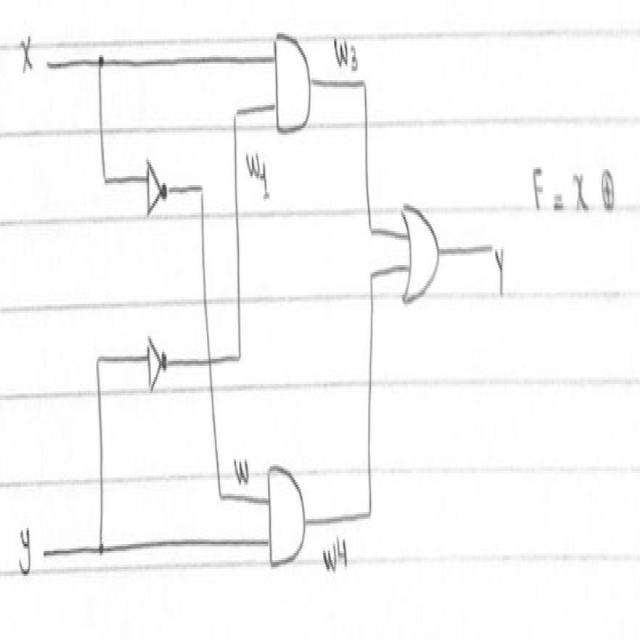 X
W3
W1
F = X ⊕
Y
W
y
W4